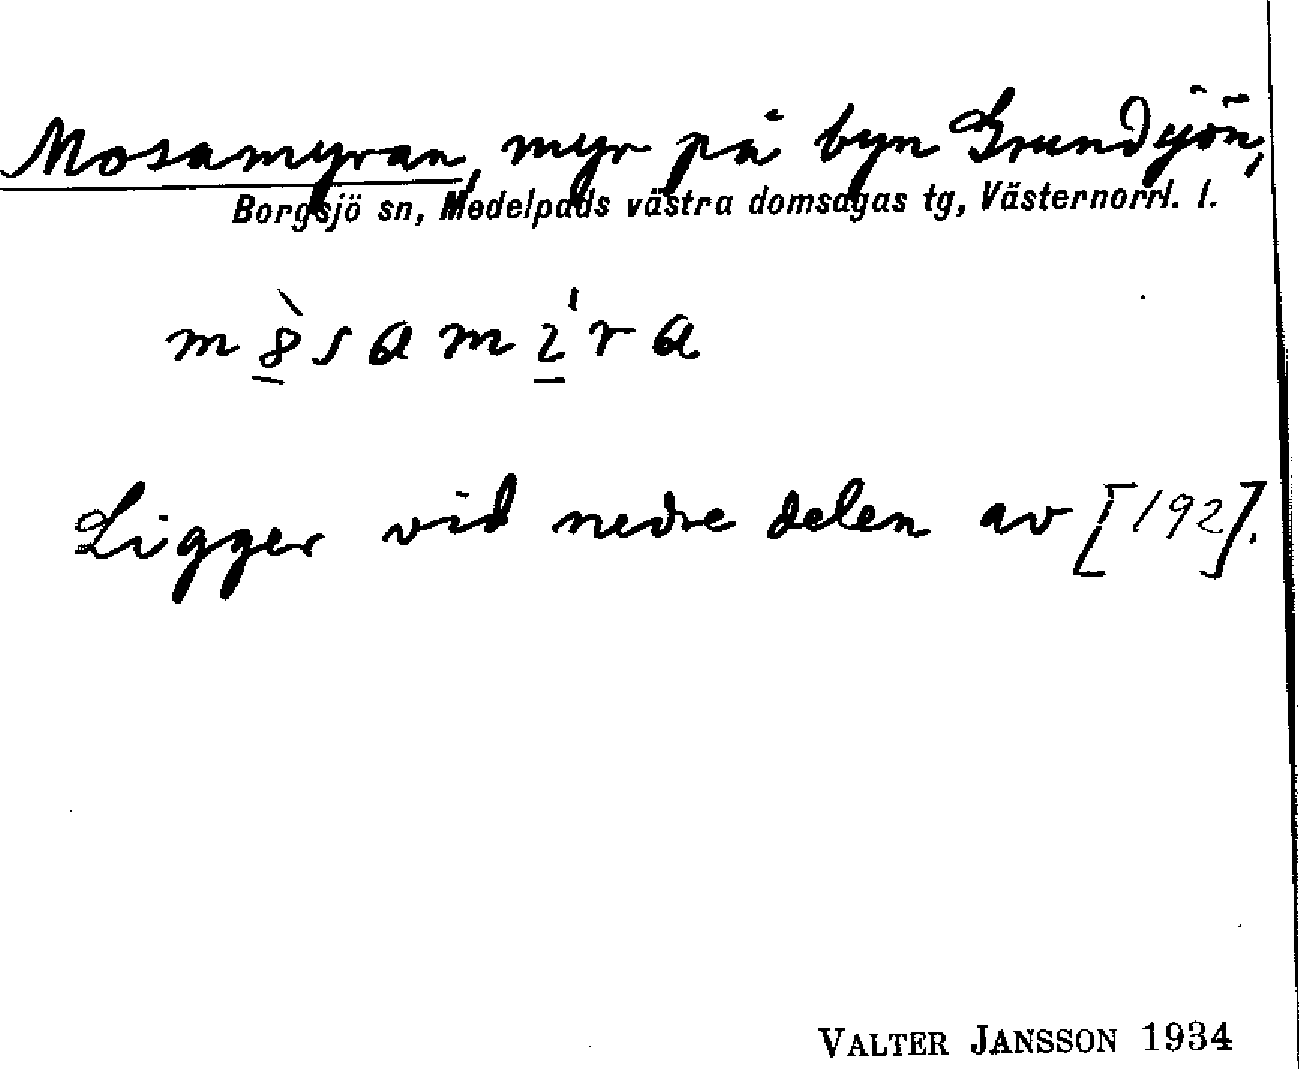 Mosamyran, myr på byn Grundsjön,
Borgsjö sn, Medelpads västra domsagas tg, Västernorrl. l.
Ligger vid nedre delen av [192].
VALTER JANSSON 1934